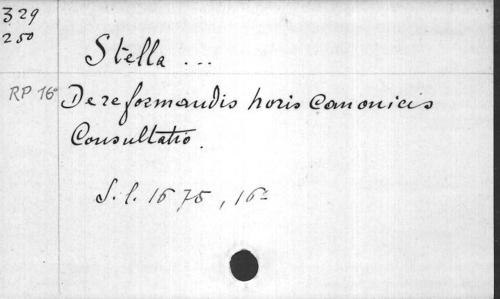 329
250
Stella ...
RP 16
De reformandis horis canonicis
Consultatio.
S. l. 1675, 16º